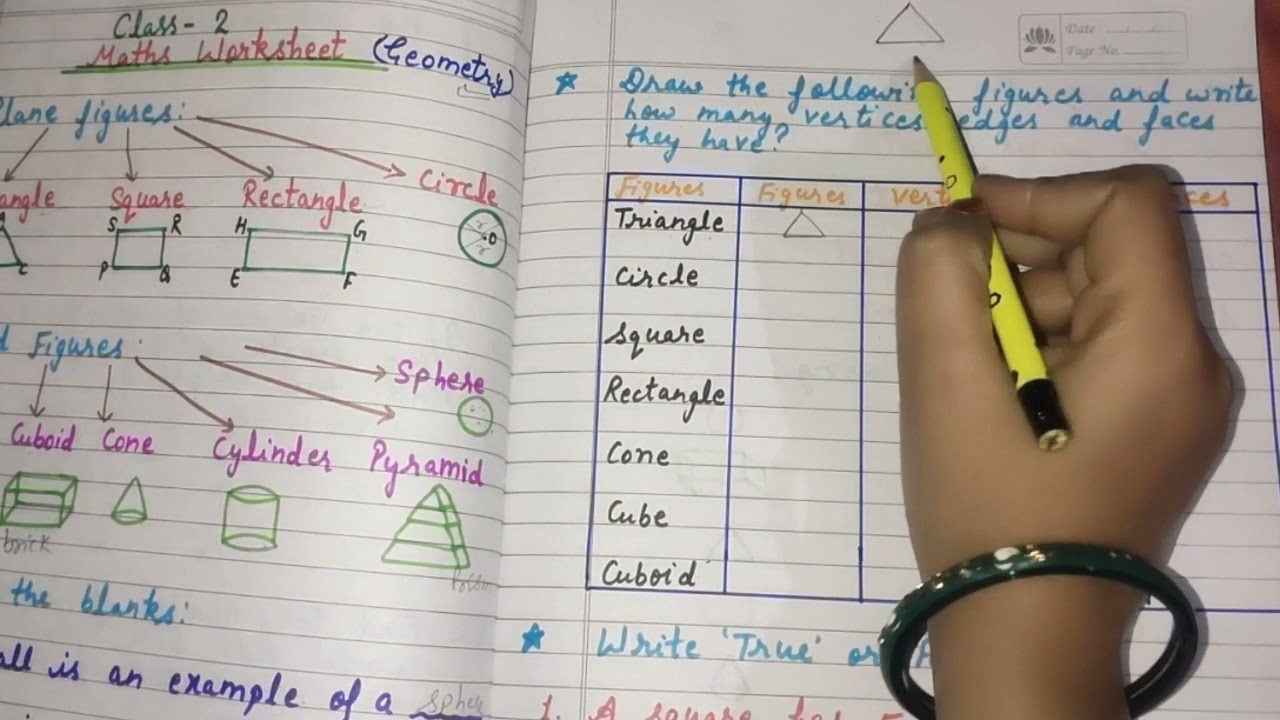 Class- 2
Maths Worksheet (Geometry)
Plane figures:
angle Square Rectangle Circle
C
S R
P Q
H G
E F
r
r
O
Figures
Sphere
Cuboid Cone Cylinder Pyramid
brick
the blanks:
all is an example of a sphe
Date
Page No.
Draw the following figures and write
how many vertices, edges and faces
they have?
Figures Figures
Triangle
Circle
Square
Rectangle
Cone
Cube
Cuboid
Write 'True' or
1. A square has